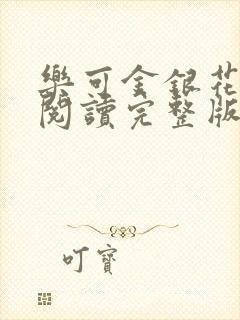 樂可金銀花
閱讀完整版
叮寶